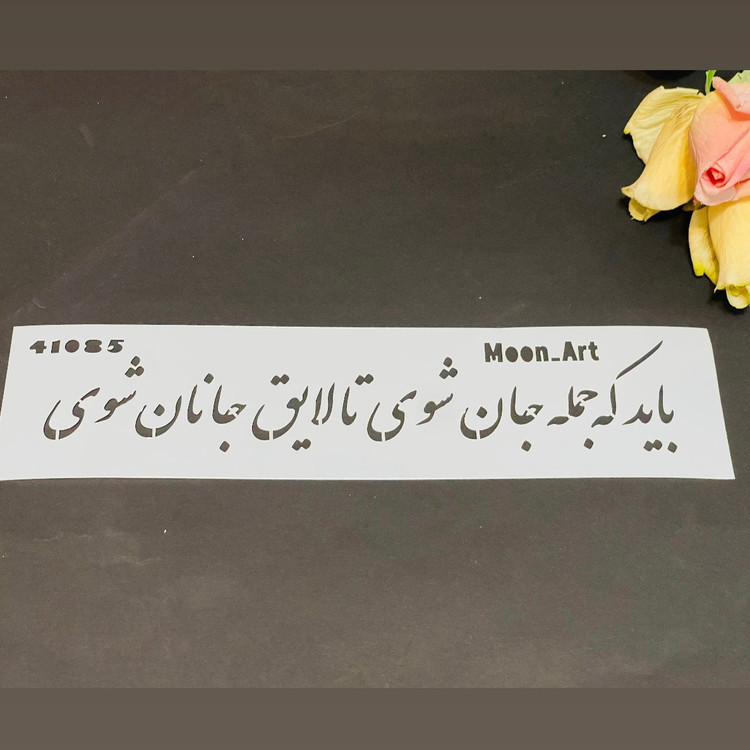 41085
Moon_Art
باید که جمله جان شوی تا لایق جانان شوی